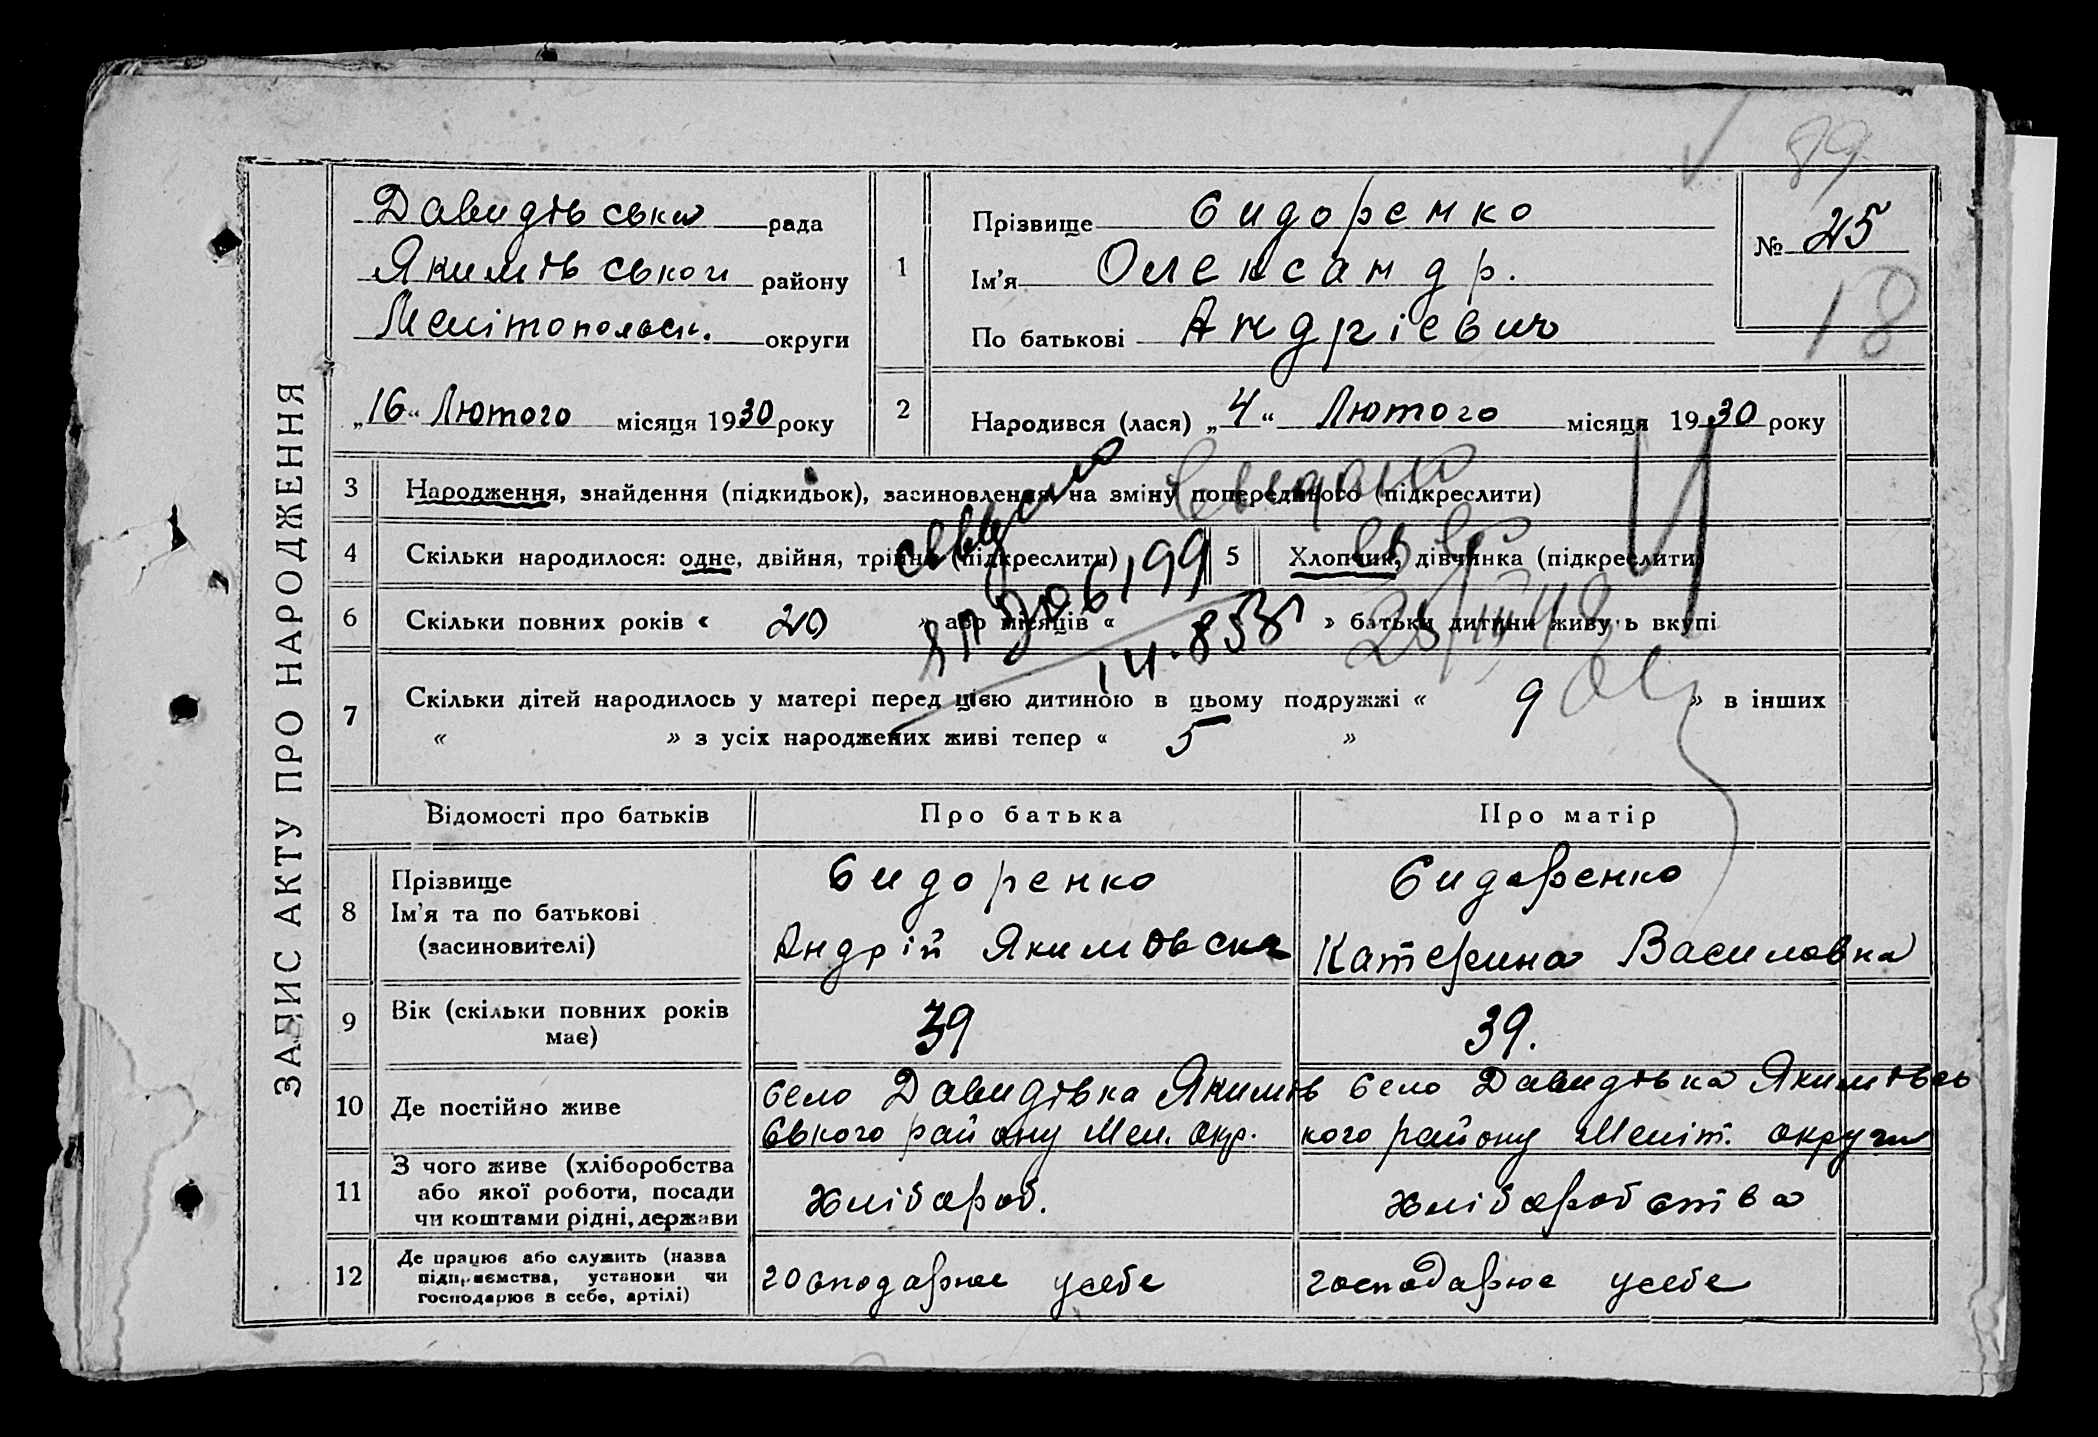 89
ЗАПИС АКТУ ПРО НАРОДЖЕННЯ
Давидівська рада
Якимівськои району
Мелітопольськ. округи
„16“ Лютого місяця 1930 року
1
Прізвище Сидоренко
Ім'я Олександр.
По батькові Андрієвич
№ 25
18
2 Народився (лася) „4“ Лютого місяця 1930 року
3 Народження, знайдення (підкидьок), засиновлення, на зміну попереднього (підкреслити)
4 Скільки народилося: одне, двійня, трійня (підкреслити) 5 Хлопчик, дівчинка (підкреслити)
6 Скільки повних років « 20 » або місяців « » батьки дитини живуть вкупі
14.853
7 Скільки дітей народилось у матері перед цією дитиною в цьому подружжі « 9 » в інших
« » з усіх народжених живі тепер « 5 »
Відомості про батьків Про батька Про матір
8 Прізвище Сидоренко Сидоренко
Ім'я та по батькові
(засиновителі) Андрій Якимович Катерина Василовна
9 Вік (скільки повних років
має) 39 39.
10 Де постійно живе село Давидівка Якимів село Давидівка Якимівсь
ського району Мел. окр. кого району Меліт. округи
11 З чого живе (хліборобства
або якої роботи, посади
чи коштами рідні, держави хлібороб. хліборобства
12 Де працює або служить (назва
підприємства, установи чи
господарює в себе, артілі) господарює усебе господарює усебе